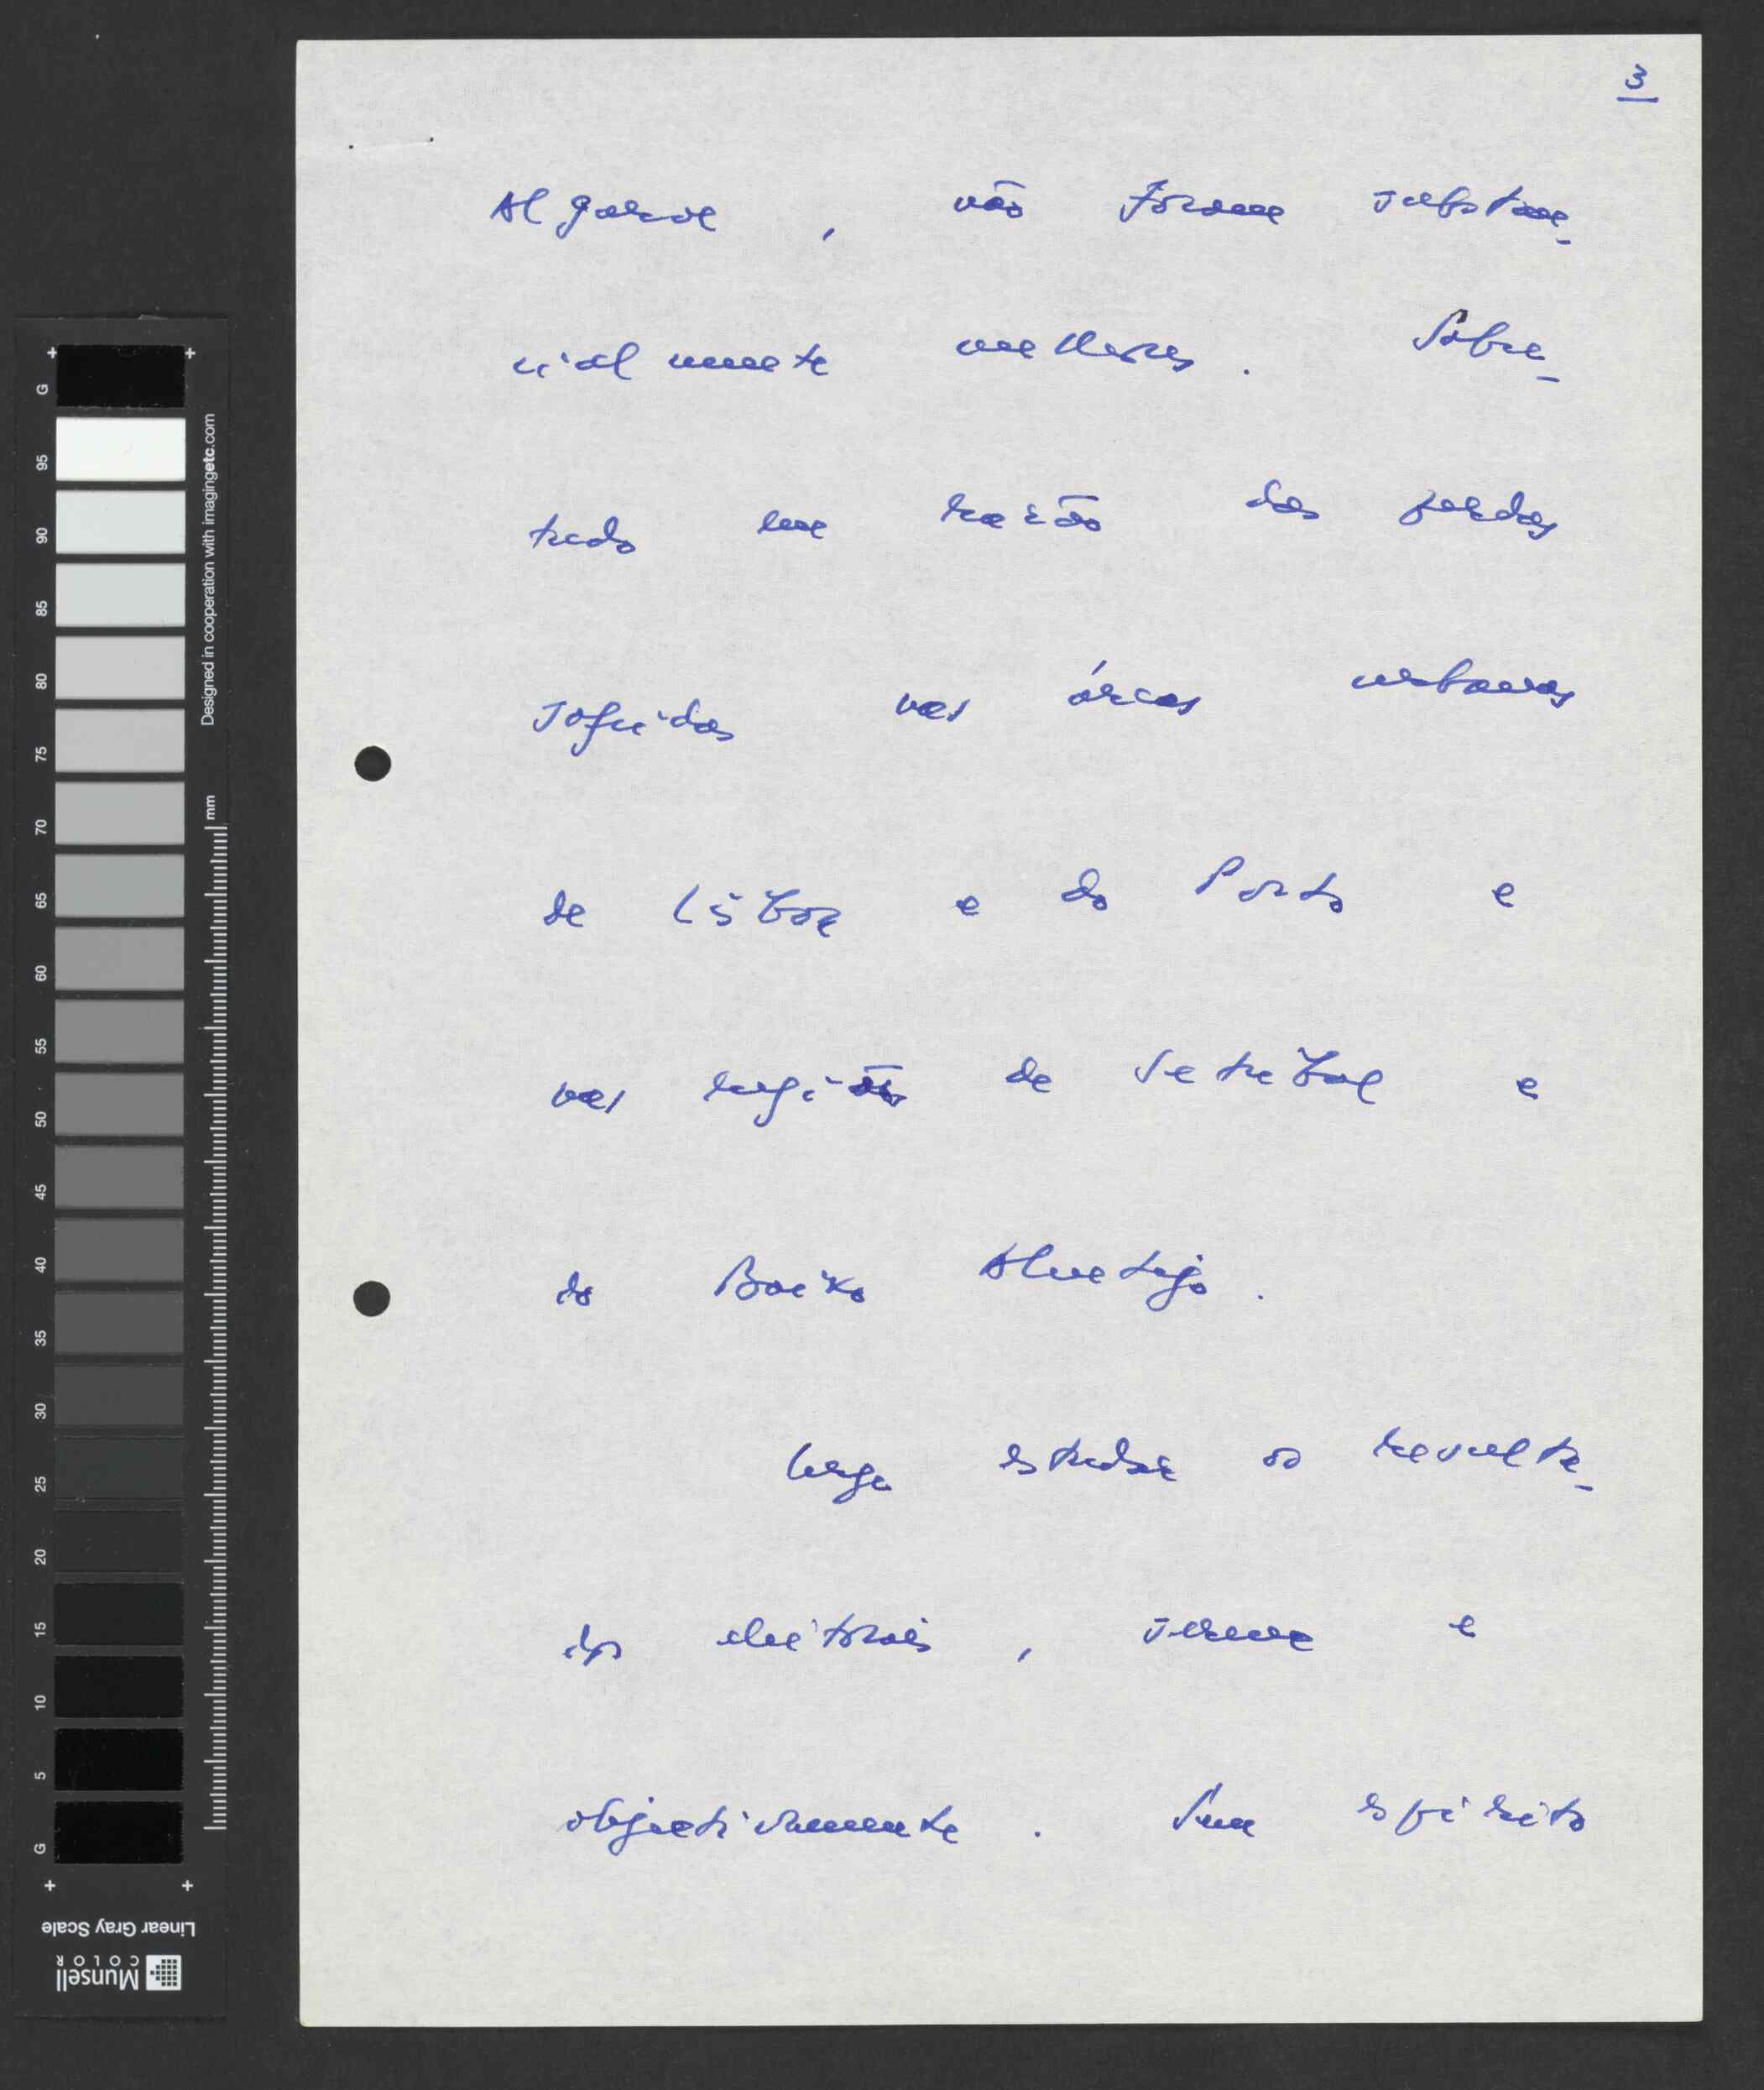 3
Algarve, não foram substan-
cialmente melhores. Sobre-
tudo em razão das perdas
sofridas nas áreas urbanas
de Lisboa e do Porto e
nas regiões de Setúbal e
do Baixo Alentejo.
Urge estudar os resulta-
dos eleitorais, serena e
objectivamente. Sem espírito
G 95 90 85 80 75 70 65 60 55 50 45 40 35 30 25 20 15 10 5 G
Designed in cooperation with imagingetc.com
mm
Linear Gray Scale
Munsell
COLOR